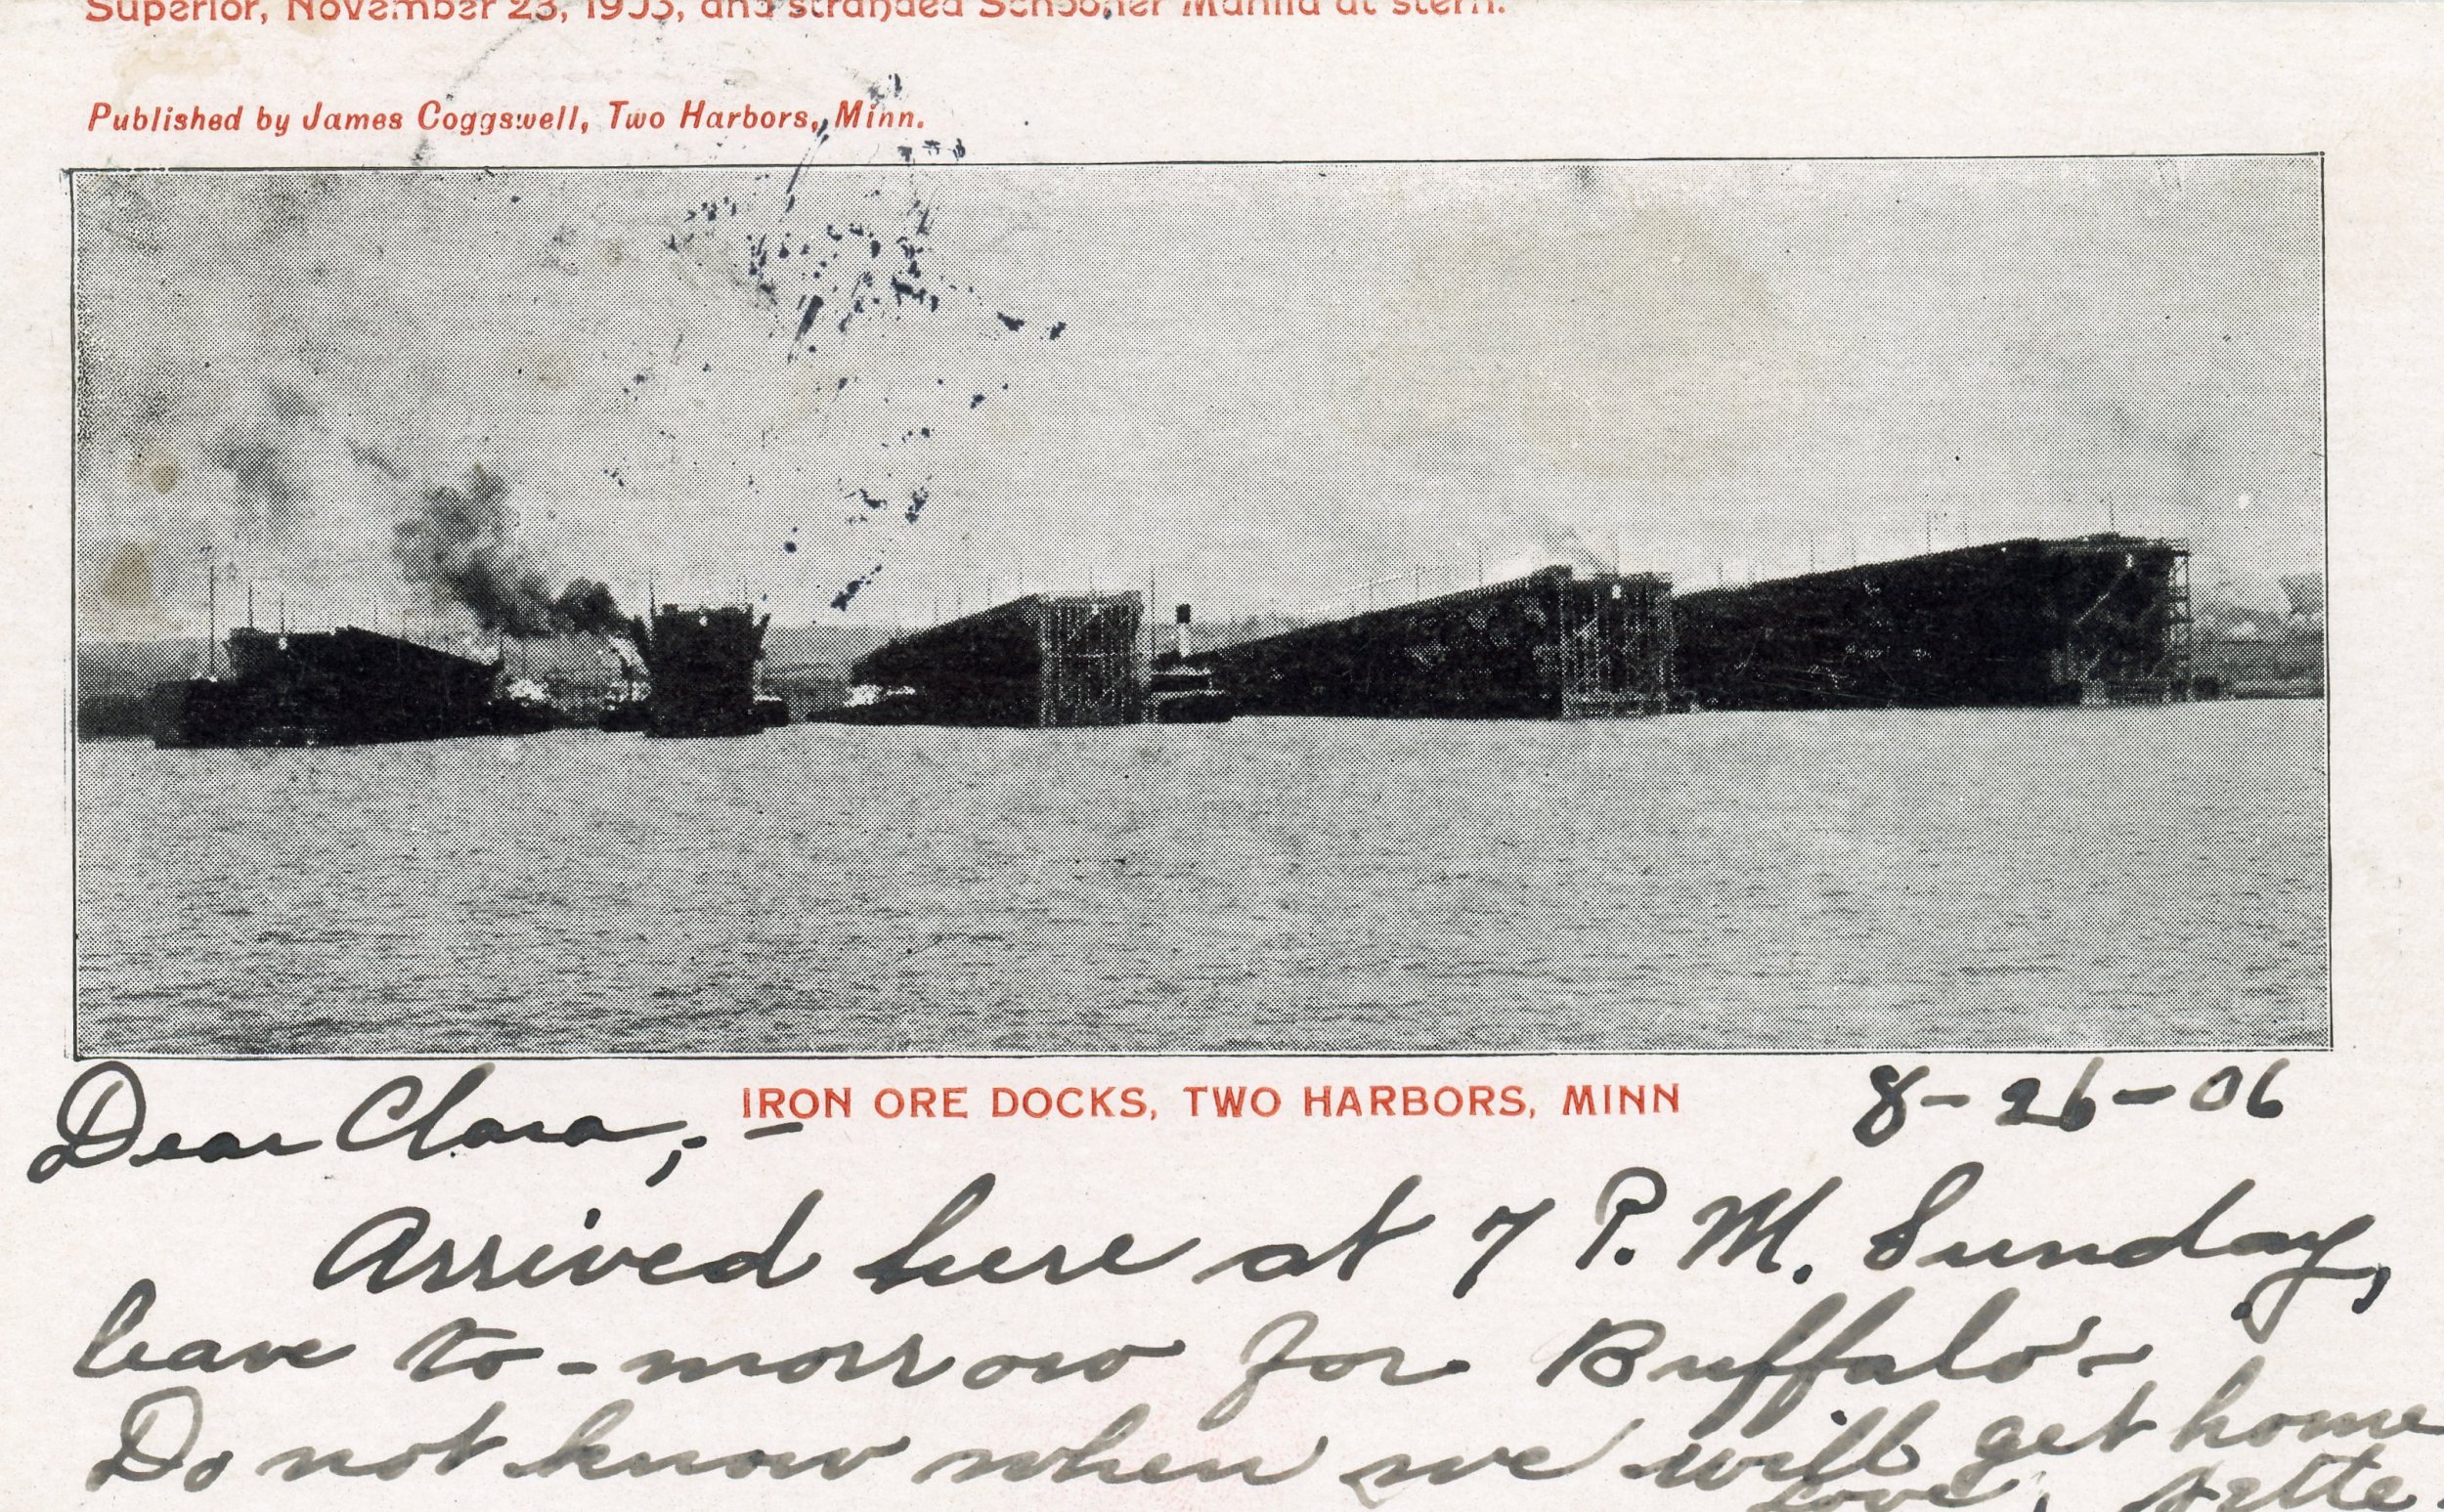 Superior, November 23, 1905, and stranded Schooner Manila at stern.
Published by James Coggswell, Two Harbors, Minn.
IRON ORE DOCKS, TWO HARBORS, MINN
8-26-06
Dear Clara,;
Arrived here at 7 P.M. Sunday,
leave to-morrow for Buffalo.
Do not know when we will get home
Love,